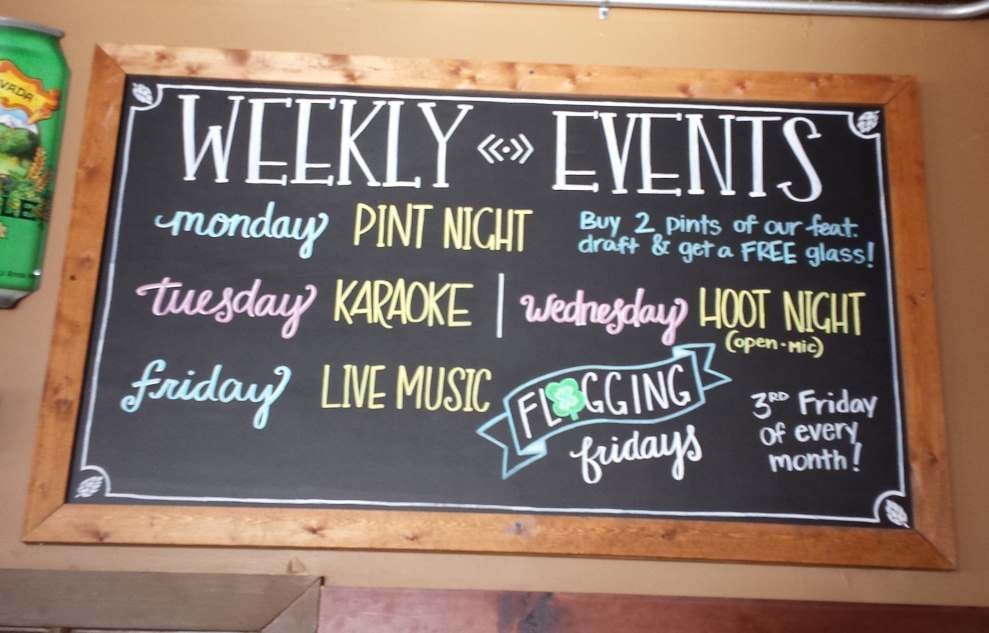 WEEKLY EVENTS
monday PINT NIGHT
Buy 2 pints of our feat.
draft & get a FREE glass!
tuesday KARAOKE | wednesday HOOT NIGHT
(open-mic)
friday LIVE MUSIC
FLOGGING
fridays
3RD Friday
of every
month!